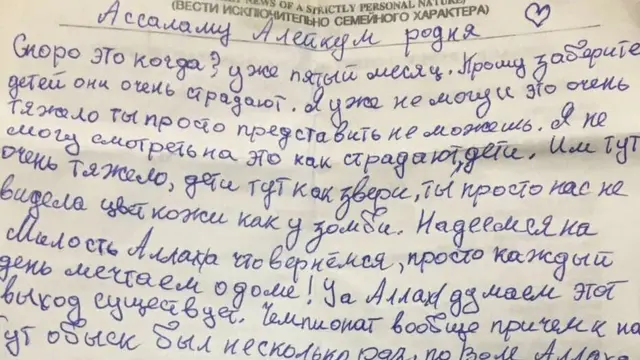 NEWS OF A STRICTLY PERSONAL NATURE)
(ВЕСТИ ИСКЛЮЧИТЕЛЬНО СЕМЕЙНОГО ХАРАКТЕРА)
Ассаламу Алейкум родня
Скоро это когда? уже пятый месяц. Прошу заберите
детей они очень страдают. Я уже не могу и это очень
тяжело ты просто представить не можешь. Я не
могу смотреть на это как страдают дети. Им тут
очень тяжело, дети тут как звери, ты просто нас не
видела цвет кожи как у зомби. Надеемся на
Милость Аллаха что вернёмся, просто каждый
день мечтаем о доме! Уа Аллах1 думаем этот
выход существует. Чемпионат вообще причем к на
Тут обыск был несколько раз, по Воле Аллаха